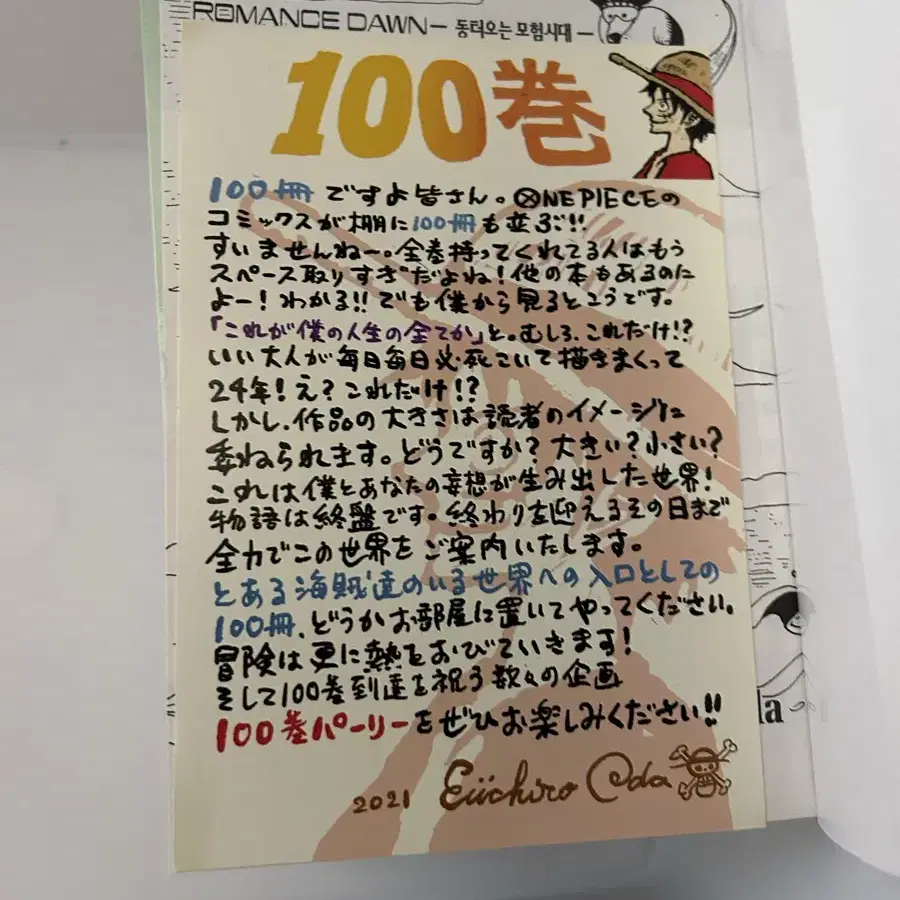 ROMANCE DAWN — 동터오는 모험시대 —
100巻
100冊ですよ皆さん。ONE PIECEの
コミックスが棚に100冊も並ぶ!!
すいませんねー。全巻持ってくれてる人はもう
スペース取りすぎだよね!他の本もあるのに
よー!わかる!!でも僕から見るとこうです。
「これが僕の人生の全てか」と。むしろ、これだけ!?
いい大人が毎日毎日必死こいて描きまくって
24年!え?これだけ!?
しかし、作品の大きさは読者のイメージに
委ねられます。どうですか?大きい?小さい?
これは僕とあなたの妄想が生み出した世界!
物語は終盤です。終わりを迎えるその日まで
全力でこの世界をご案内いたします。
とある海賊達のいる世界への入口としての
100冊、どうかお部屋に置いてやってください。
冒険は更に熱をおびていきます!
そして100巻到達を祝う数々の企画
100巻パーリーをぜひお楽しみください!!
2021 Eiichiro Oda